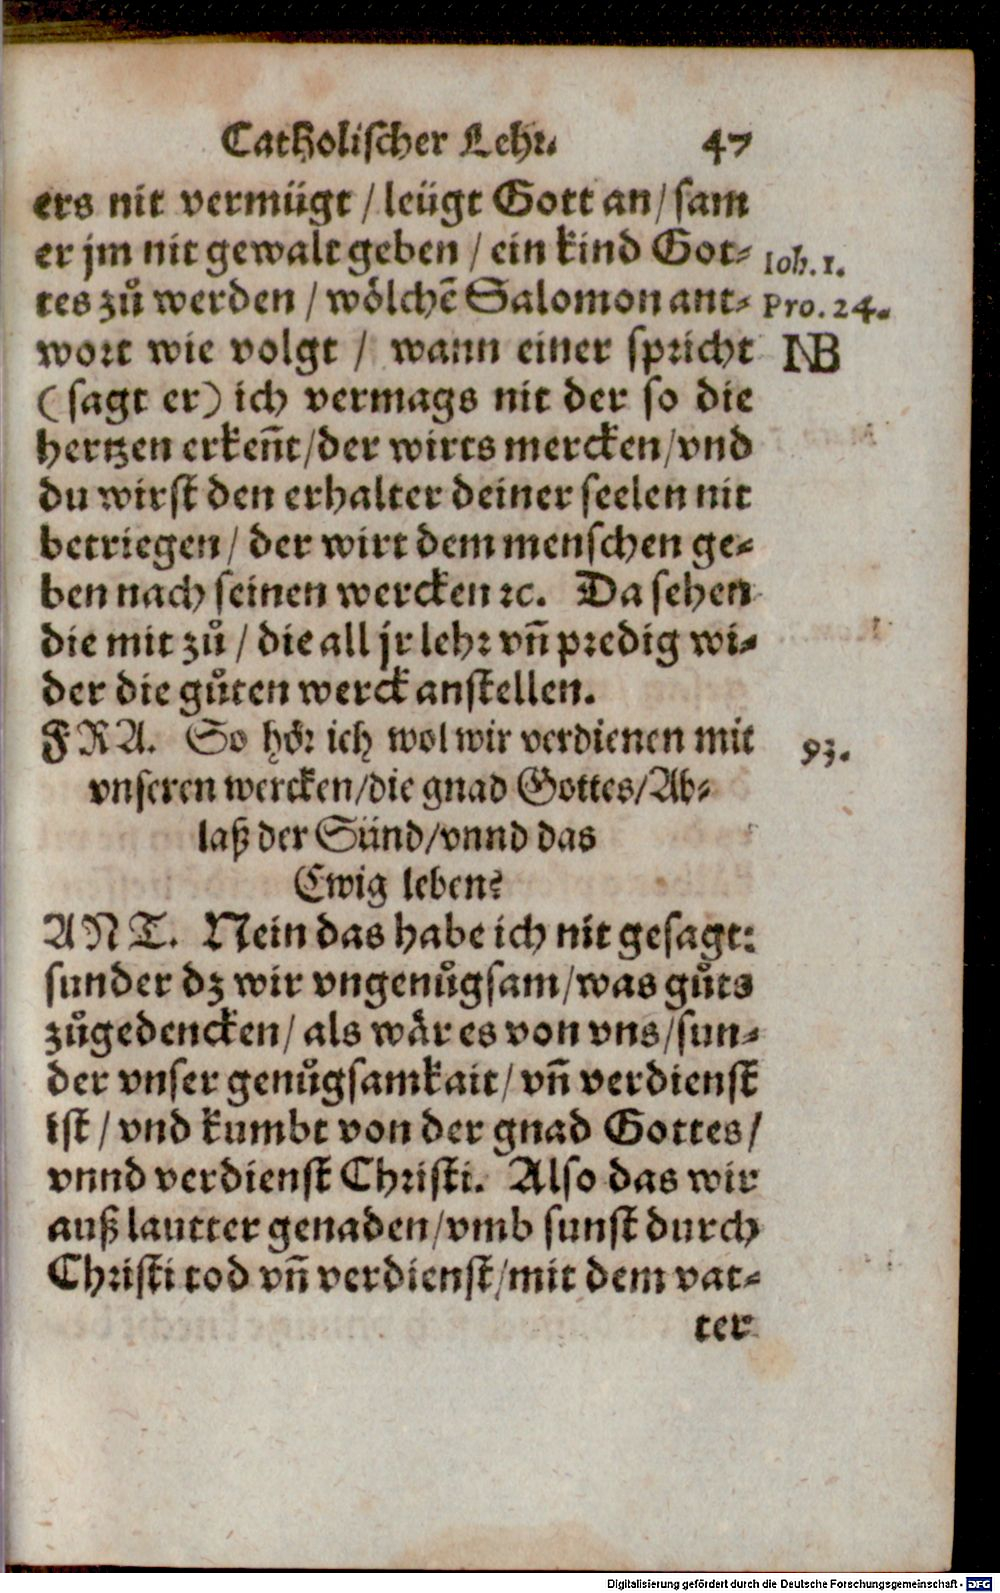 Catholischer Lehr. 47
ers nit vermügt / leügt Gott an / sam
er jm nit gewalt geben / ein kind Got-
Ioh. 1.
tes zů werden / wölchē Salomon ant-
Pro. 24.
wort wie volgt / wann einer spricht
NB
(sagt er) ich vermags nit der so die
hertzen erkeñt / der wirts mercken / vnd
du wirst den erhalter deiner seelen nit
betriegen / der wirt dem menschen ge-
ben nach seinen wercken ꝛc. Da sehen
die mit zů / die all jr lehr vñ predig wi-
der die gůten werck anstellen.
FRA. So hör ich wol wir verdienen mit
93.
vnseren wercken / die gnad Gottes / Ab-
laß der Sünd / vnnd das
Ewig leben?
ANT. Nein das habe ich nit gesagt:
sunder dz wir vngenůgsam / was gůts
zůgedencken / als wär es von vns / sun-
der vnser genůgsamkait / vñ verdienst
ist / vnd kumbt von der gnad Gottes /
vnnd verdienst Christi. Also das wir
auß lautter genaden / vmb sunst durch
Christi tod vñ verdienst / mit dem vat-
ter
Digitalisierung gefördert durch die Deutsche Forschungsgemeinschaft - DFG